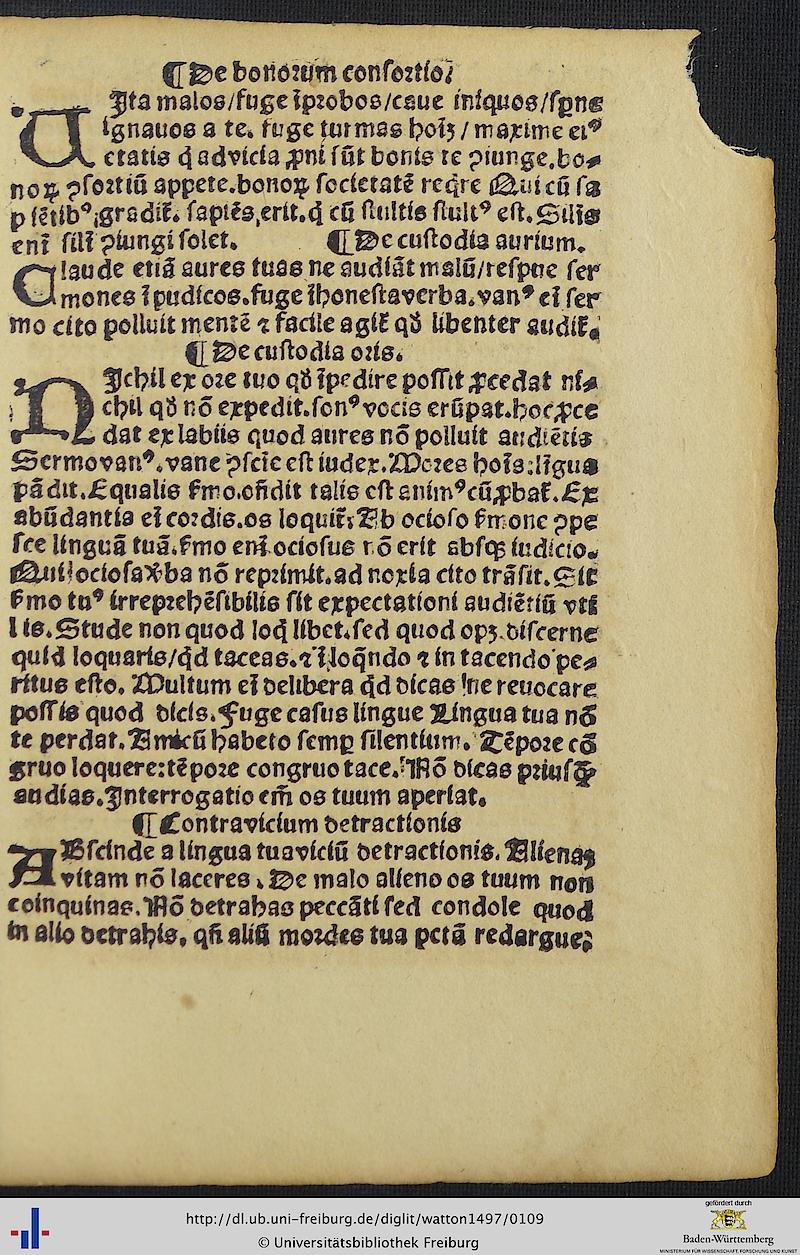 ¶De bonorum consortio.
VIta malos/fuge īprobos/caue iniquos/sꝑne
ignauos a te. fuge turmas hoīꝫ/maxime eiꝰ
etatis q̄ ad vicia ꝓni sūt bonis te ꝯiunge.bo⸗
noꝝ ꝯsortiū appete.bonoꝝ societatē reqͥre Qui cū sa
piētibꝰ,gradit᷑. sapiēs,erit.q̄ cū stultis stultꝰ est.Silis
enī sili ꝯiungi solet. ¶De custodia aurium.
Claude etiā aures tuas ne audiāt malū/respue ser
mones īpudicos.fuge īhonesta verba.vanꝰ eī ser
mo cito polluit mentē ⁊ facile agit᷑ qđ libenter audit᷑.
¶De custodia oris.
NIchil ex ore tuo qđ īpedire possit ꝓcedat ni⸗
chil qđ nō expedit.sonꝰ vocis erūpat.hoc ꝓce
dat ex labiis quod aures nō polluit audiētis
Sermo vanꝰ.vane ꝯscīe est iudex.Mores hoīs:līgua
pādit.Equalis ẜmo.oñdit talis est animꝰ cū ꝓbat᷑.Ex
abūdantia eī cordis.os loquit᷑. Ab ocioso ẜmone ꝯpe
sce linguā tuā.ẜmo enī ociosus nō erit absqꝫ iudicio.
Qui ociosa v̓ba nō reprimit.ad noxia cito trāsit.Sit
ẜmo tuꝰ irreprehēsibilis sit expectationi audiētiū vti
lis.Stude non quod loq̄ libet.sed quod opꝫ.discerne
quid loquaris/qͥd taceas.⁊ ī loqͣndo ⁊ in tacendo pe⸗
ritus esto. Multum eī delibera qͥd dicas ne reuocare
possis quod dicis.Fuge casus lingue Lingua tua nō
te perdat.Amicū habeto semꝑ silentium. Tēpore cō
gruo loquere:tēpore congruo tace. Nō dicas priusꝙ̄
audias.Interrogatio em̄ os tuum aperiat.
¶Contra vicium detractionis
ABscinde a lingua tua viciū detractionis. Alienaꝫ
vitam nō laceres. De malo alieno os tuum non
coinquinas.Nō detrahas peccāti sed condole quod
in alio detrahis. qn̄ aliū mordes tua pctā redargue:
http://dl.ub.uni-freiburg.de/diglit/watton1497/0109
© Universitätsbibliothek Freiburg
gefördert durch
Baden-Württemberg
MINISTERIUM FÜR WISSENSCHAFT, FORSCHUNG UND KUNST